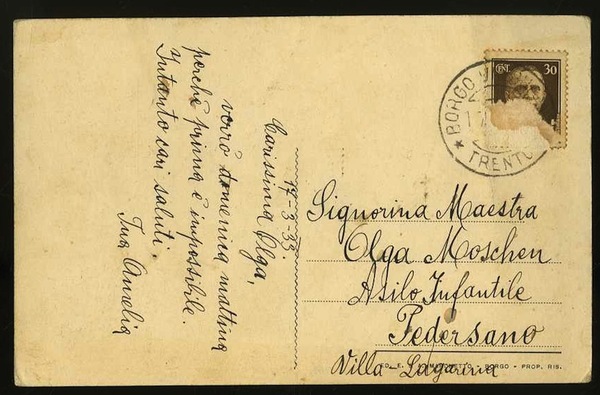 17-3-32.
Carissima Olga,
verrò domenica mattina
perchè prima è impossibile.
Intanto cari saluti.
Tua Amelia
CENT 30
BORGO
TRENTO
Signorina Maestra
Olga Moschen
Asilo Infantile
Pedersano
Villa-Lagarina
BORGO - PROP. RIS.